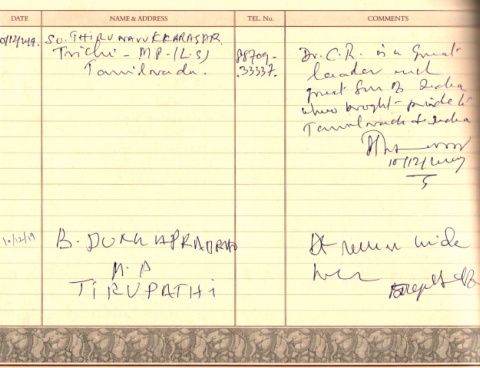 DATE NAME & ADDRESS TEL. No. COMMENTS
10/12/2019. SU. THIRUNAVUKKARASAR
Trichi - MP - (L.S)
Tamilnadu.
98709-
33337.
Dr. C.R. is a Great
leader and
great Son of India
who brought pride to
Tamilnadu & India
10/12/2019
10/12/19 B. DURGAPRASAD RAO
M.P
TIRUPATHI